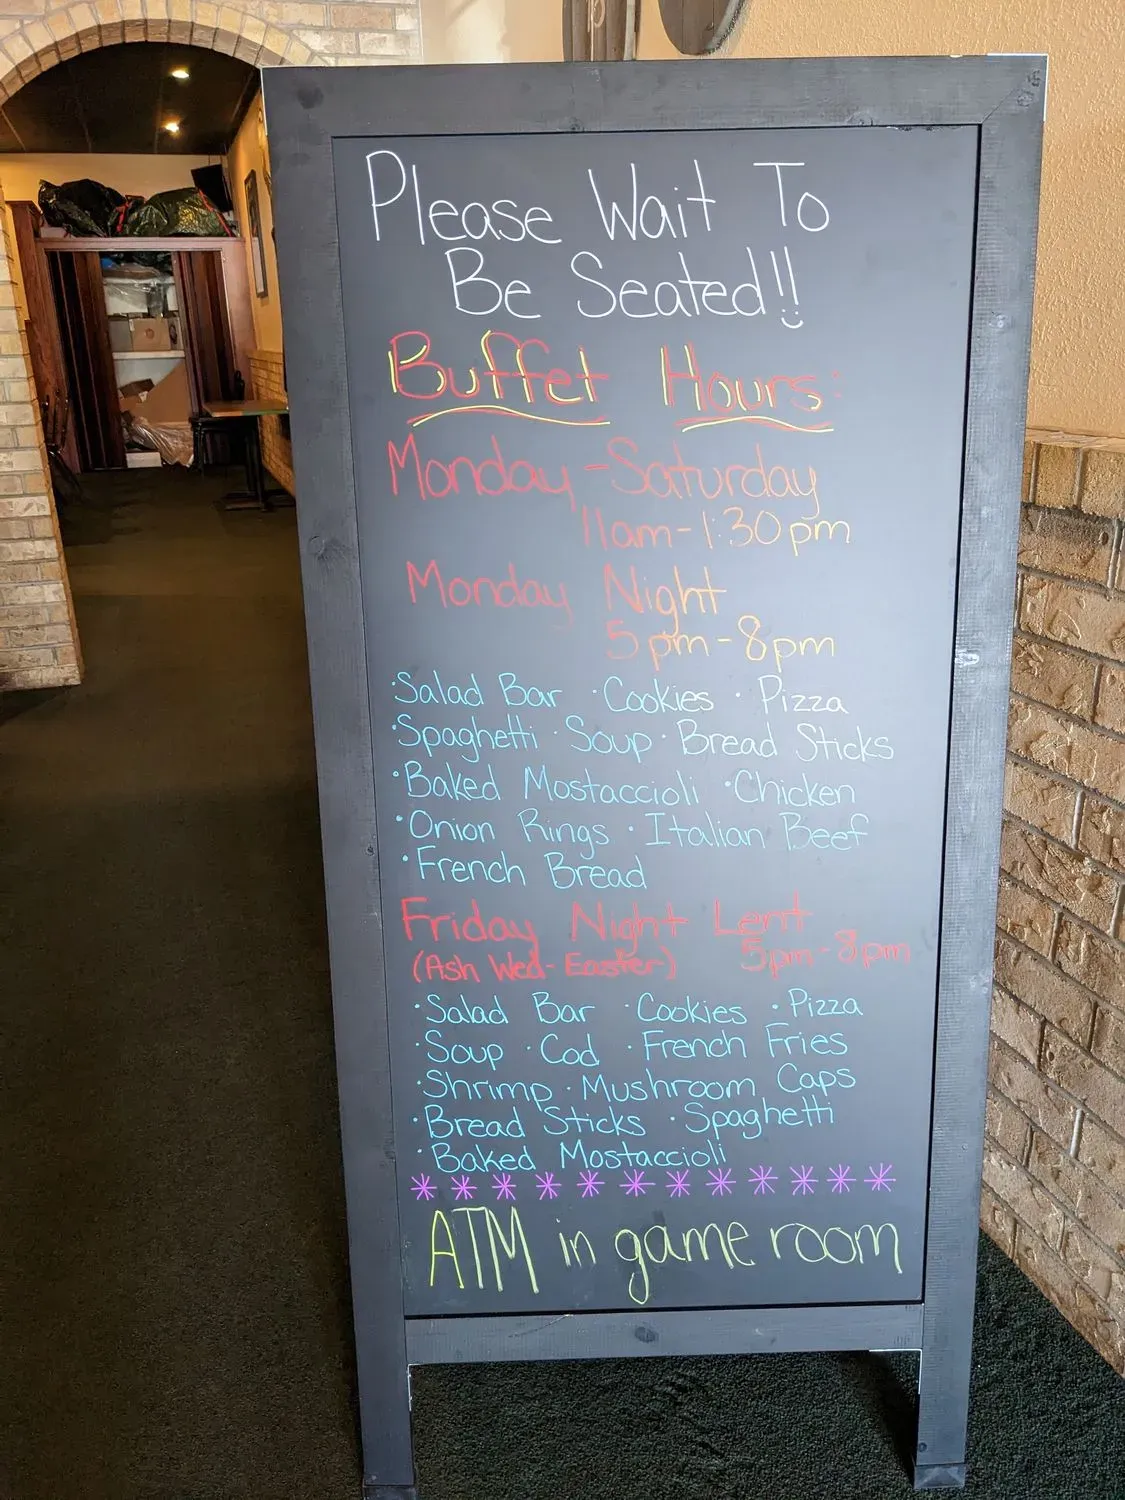 Please Wait To
Be Seated!!
Buffet Hours:
Monday-Saturday
11am-1:30pm
Monday Night
5pm-8pm
·Salad Bar ·Cookies ·Pizza
·Spaghetti ·Soup ·Bread Sticks
·Baked Mostaccioli ·Chicken
·Onion Rings ·Italian Beef
·French Bread
Friday Night Lent
(Ash Wed-Easter) 5pm-8pm
·Salad Bar ·Cookies ·Pizza
·Soup ·Cod ·French Fries
·Shrimp ·Mushroom Caps
·Bread Sticks ·Spaghetti
·Baked Mostaccioli
ATM in game room